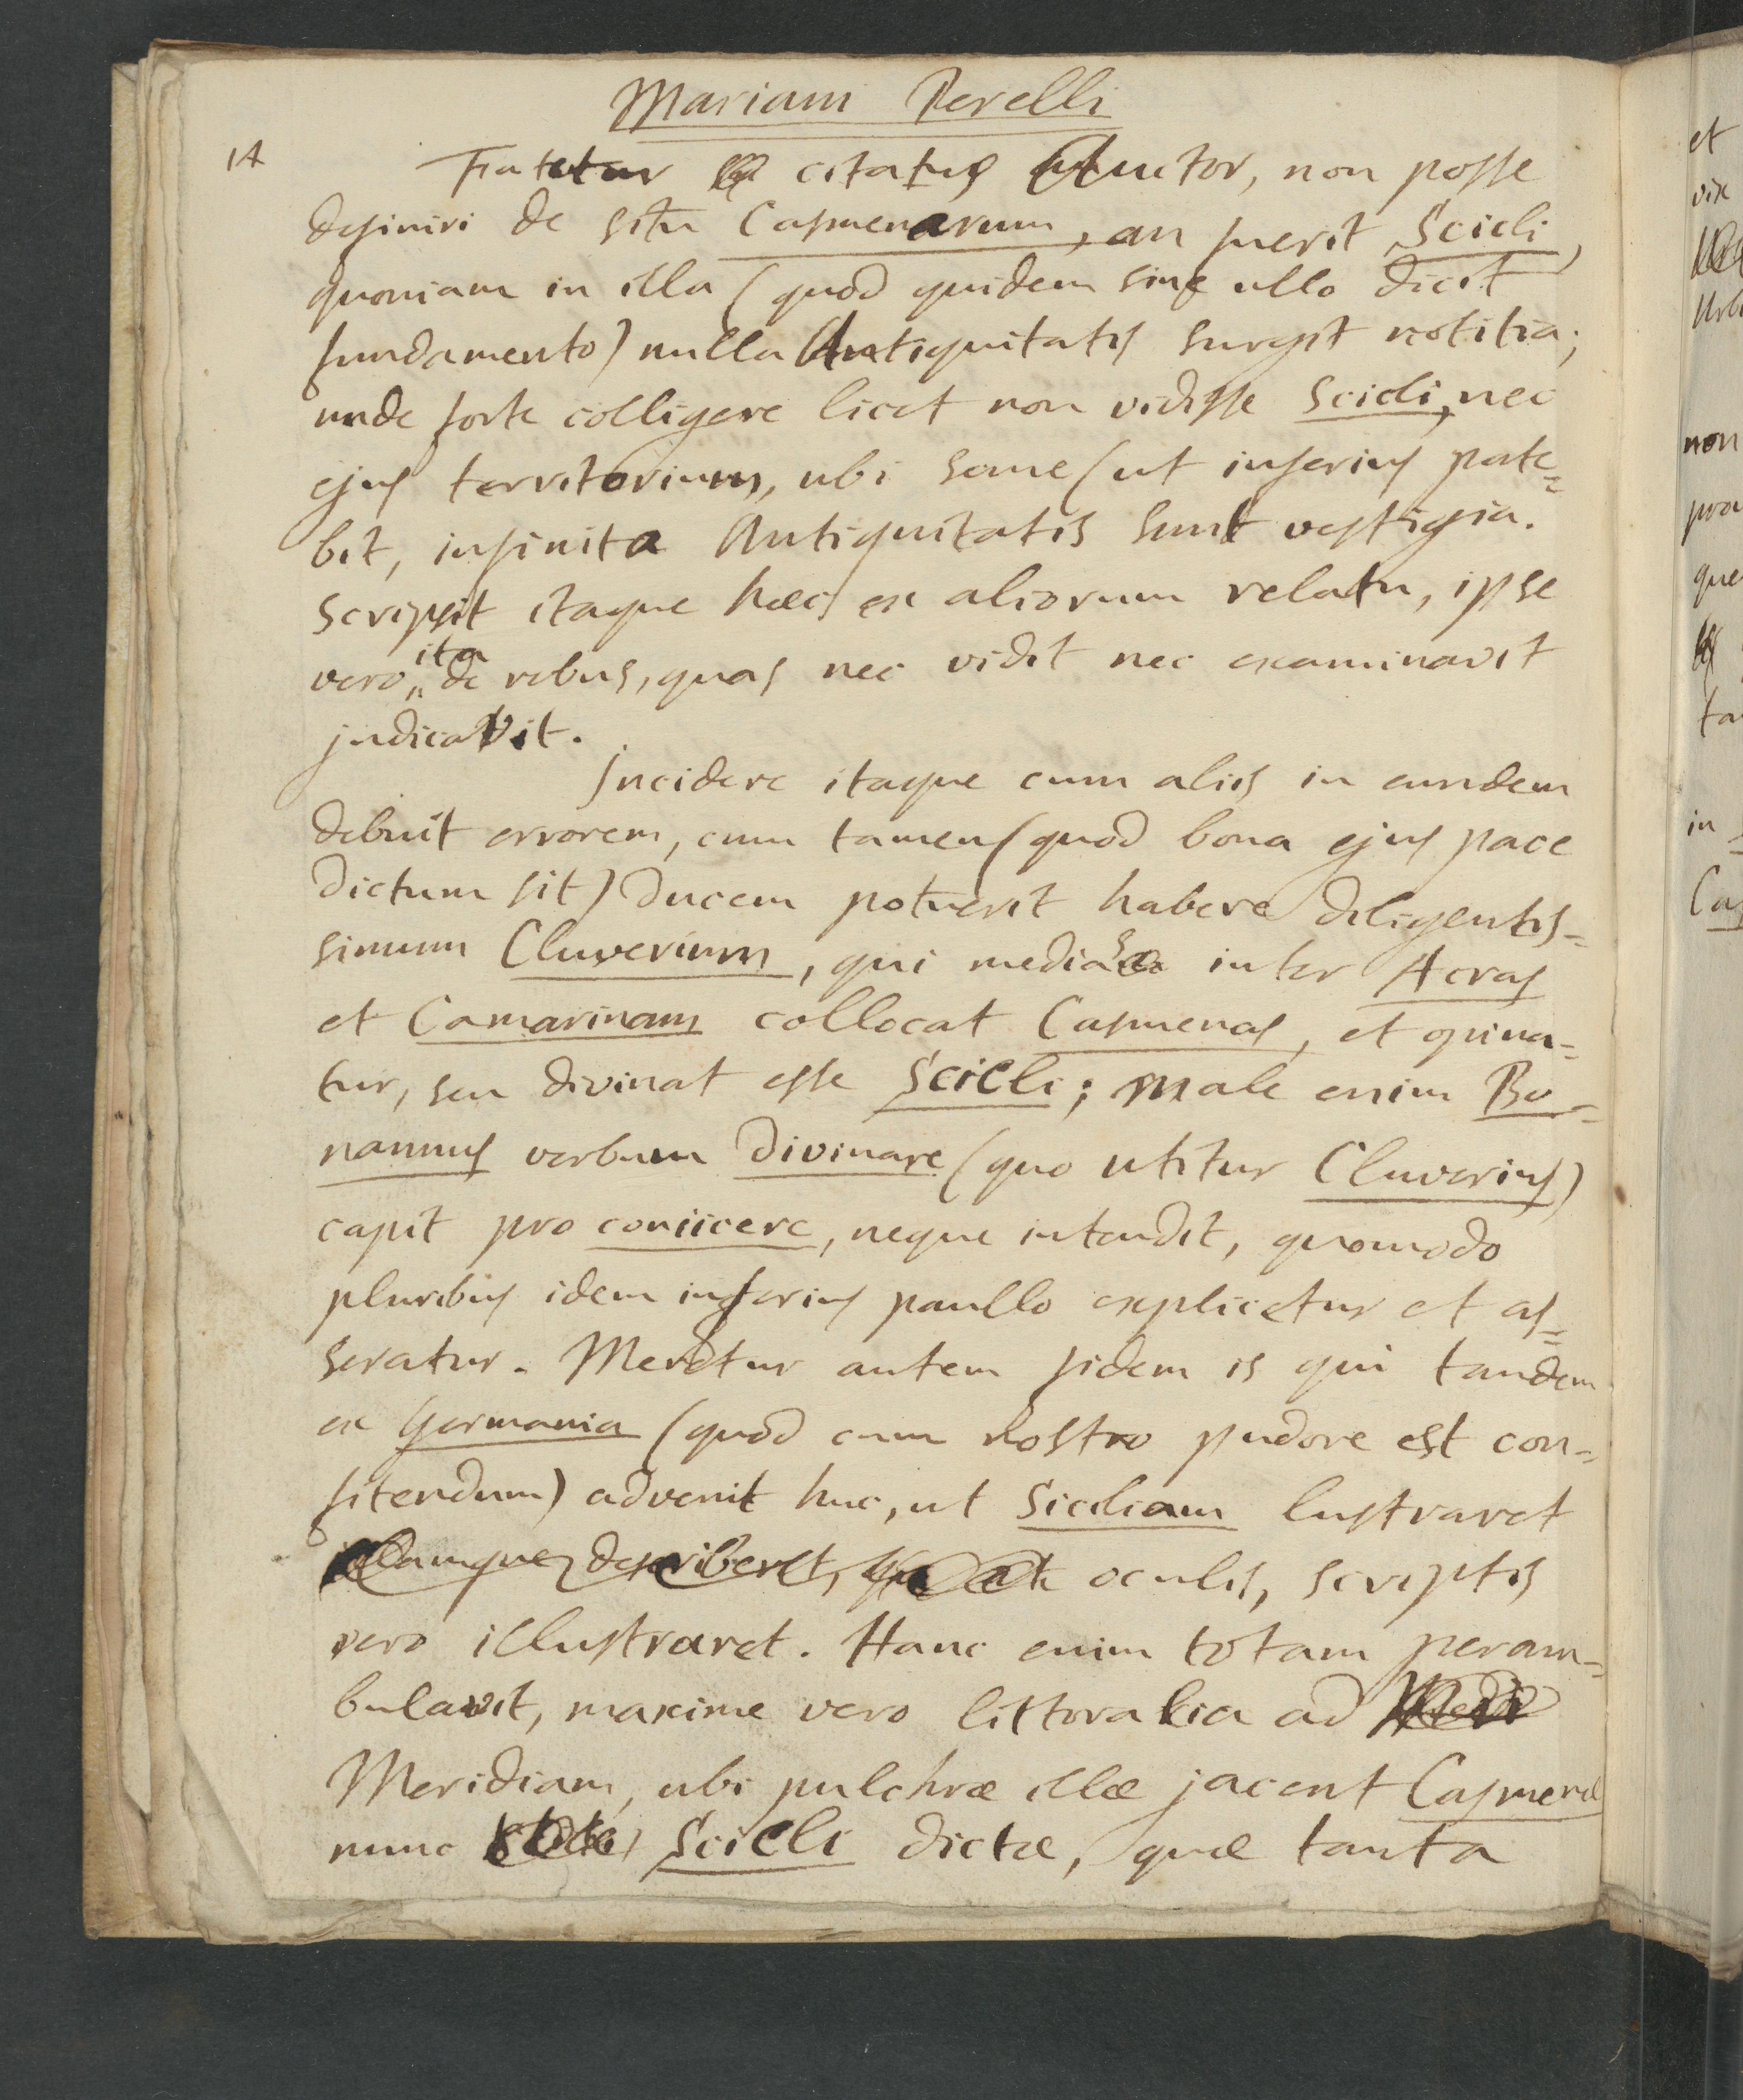 Mariani Perelli
14
Fatetur citatus Auctor, non posse
definiri de situ Casmenarum, an fuerit Scicli,
quoniam in illa (quod quidem sine ullo dicit
fundamento) nulla Antiquitatis surgit notitia;
unde forte colligere licet non vidisse Scicli, nec
ejus territorium, ubi sane (ut inferius pate=
bit, infinita Antiquitatis sunt vestigia.
Scripsit itaque hæc ex aliorum relatu, ipse
vero ita de rebus, quas nec vidit nec examinavit
judicavit.
Incidere itaque cum aliis in eundem
debuit errorem, cum tamen (quod bona ejus pace
dictum sit) ducem potuerit habere diligentis=
simum Cluverium, qui medias inter Acras
et Camarinam collocat Casmenas, et opina=
tur, seu divinat esse Scicli; male enim Bo=
nannus verbum Divinare (quo utitur Cluverius)
capit pro coniicere, neque intendit, quomodo
pluribus idem inferius paullo explicetur et as=
seratur. Meretur autem fidem is qui tandem
ex Germania (quod cum nostro pudore est con=
fitendum) advenit huc, ut Siciliam lustraret
illamque describeret, oculis, scriptis
vero illustraret. Hanc enim totam peram=
bulavit, maxime vero littoralia ad Meri
Meridiam, ubi pulchræ illæ jacent Casmenæ
nunc Scicli dictæ, quæ tanta
et
vix
Urb
non
pra
que
ta
in
Cas